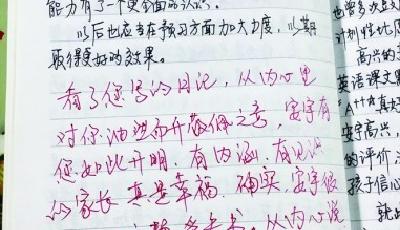 能力有了一个更全面的认识。
以后也应当在预习方面加大力度，以期
取得更好的效果。
看了您写的日记，从内心里
对你油然而升敬佩之意，安宇有
您如此开明、有内涵、有见识
的家长真是幸福。确实，安宇做
从内心说
计划性比
高兴的
英语课文
A++
安宇高兴，
的评价
孩子信心
就